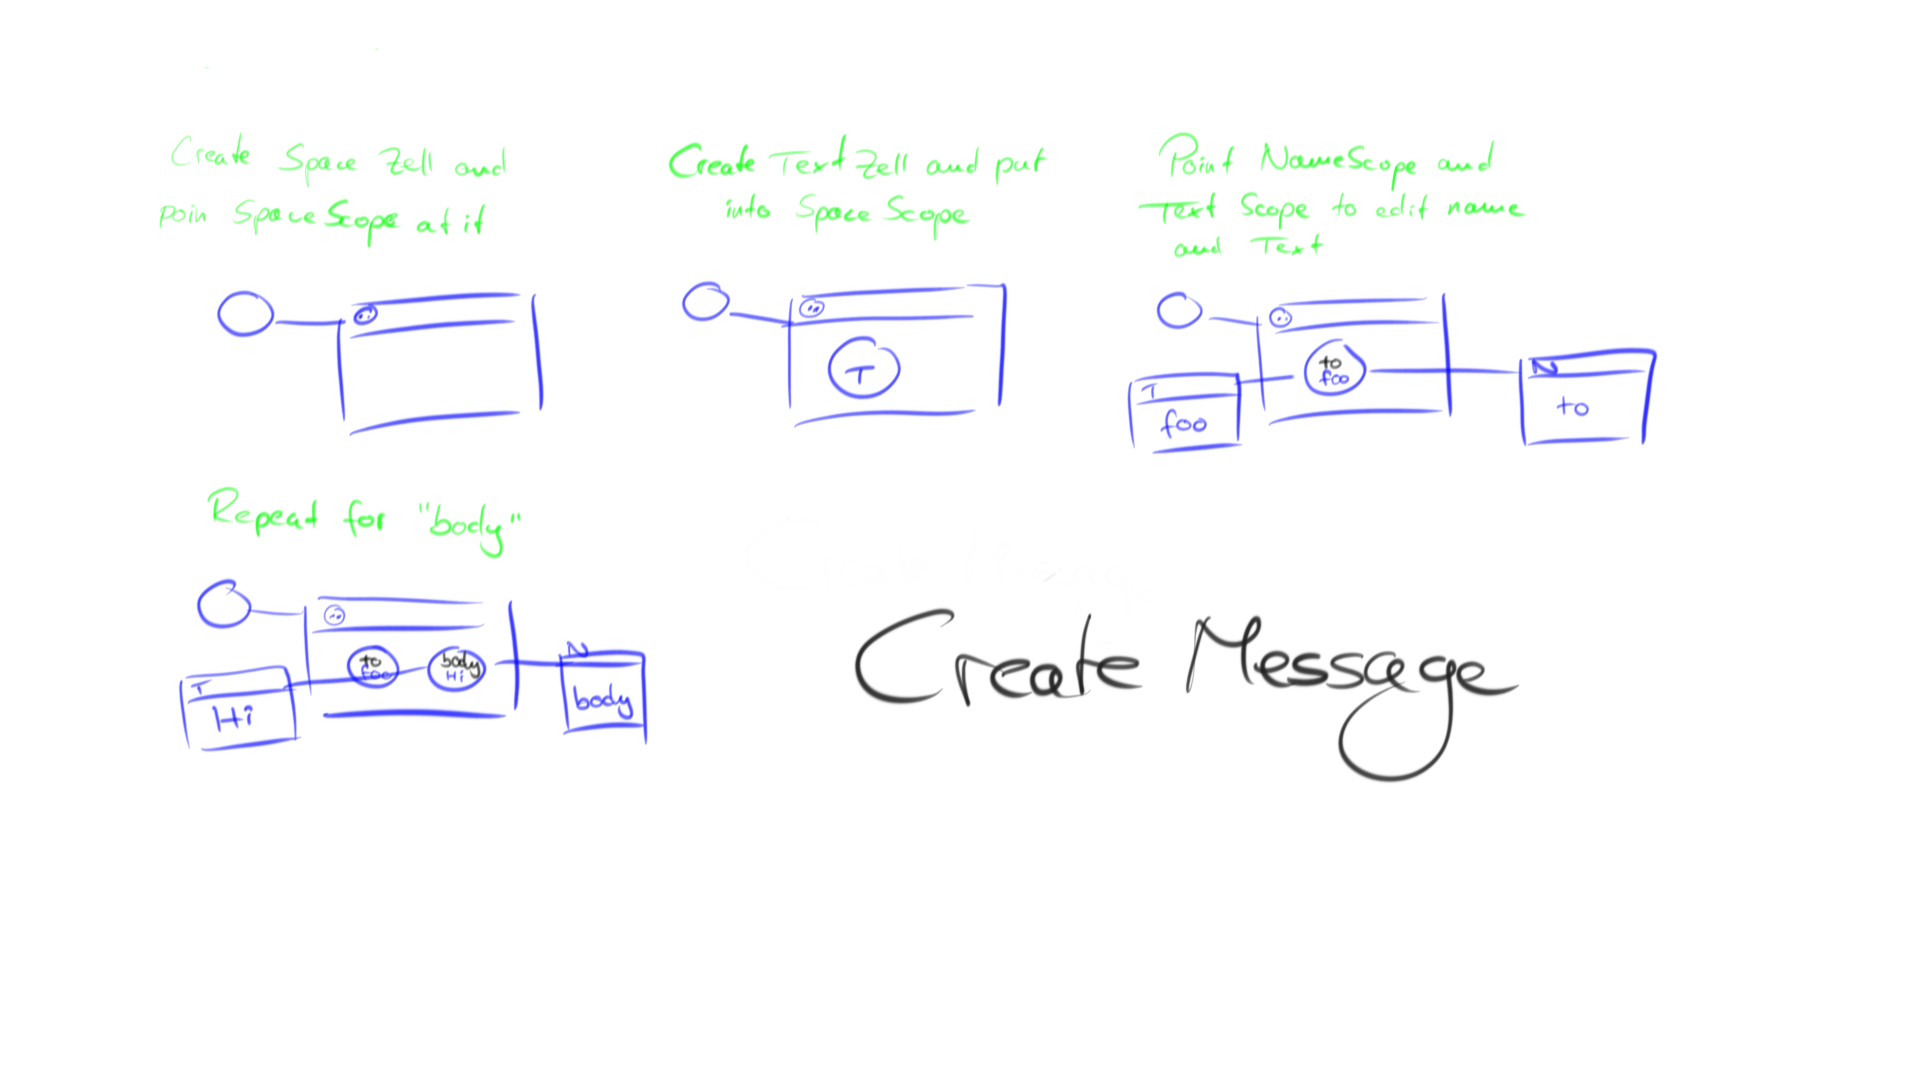 Create Space Zell and
poin SpaceScope at it
Create Text Zell and put
into Space Scope
Point NameScope and
Text Scope to edit name
and Text
T
to
foo
N
T
foo
to
Repeat for "body"
N
to
foo
body
Hi
T
Hi
body
Create Message